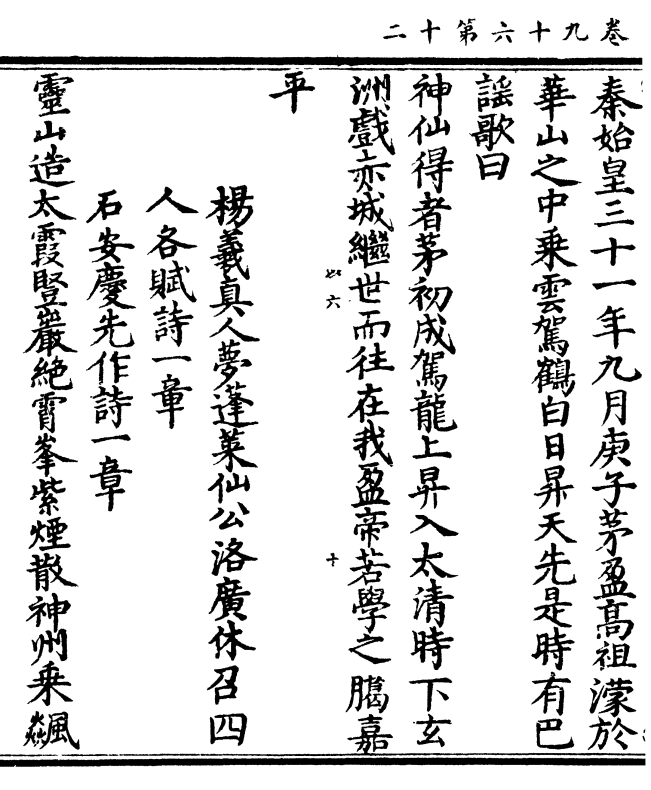 卷九十六第十二
秦始皇三十一年九月庚子茅盈高祖濛於
華山之中乗雲駕鶴白日昇天先是時有巴
謡歌曰
神仙得者茅初成駕龍上昇入太清時下玄
洲戲赤城繼世而往在我盈帝若學之臈嘉
平
六
十
楊羲真人夢蓬萊仙公洛廣休召四
人各賦詩一章
石安慶先作詩一章
靈山造太霞竪巖絶霄峯紫煙散神州乗飈